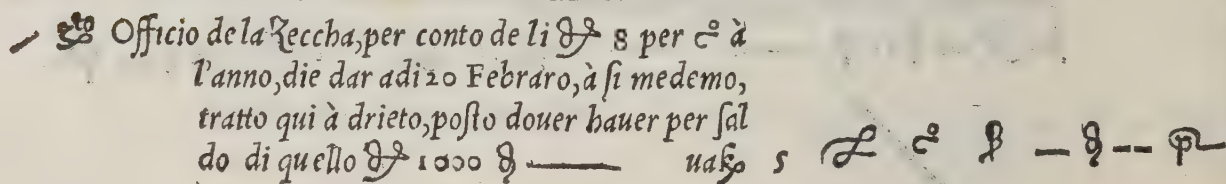 Officio de la Zeccha, per conto de li 8 per cº à
l'anno, die dar adi 20 Febraro, à ſi medemo,
tratto qui à drieto, poſto douer hauer per ſal
do di quello 1000 — 5 cº — —